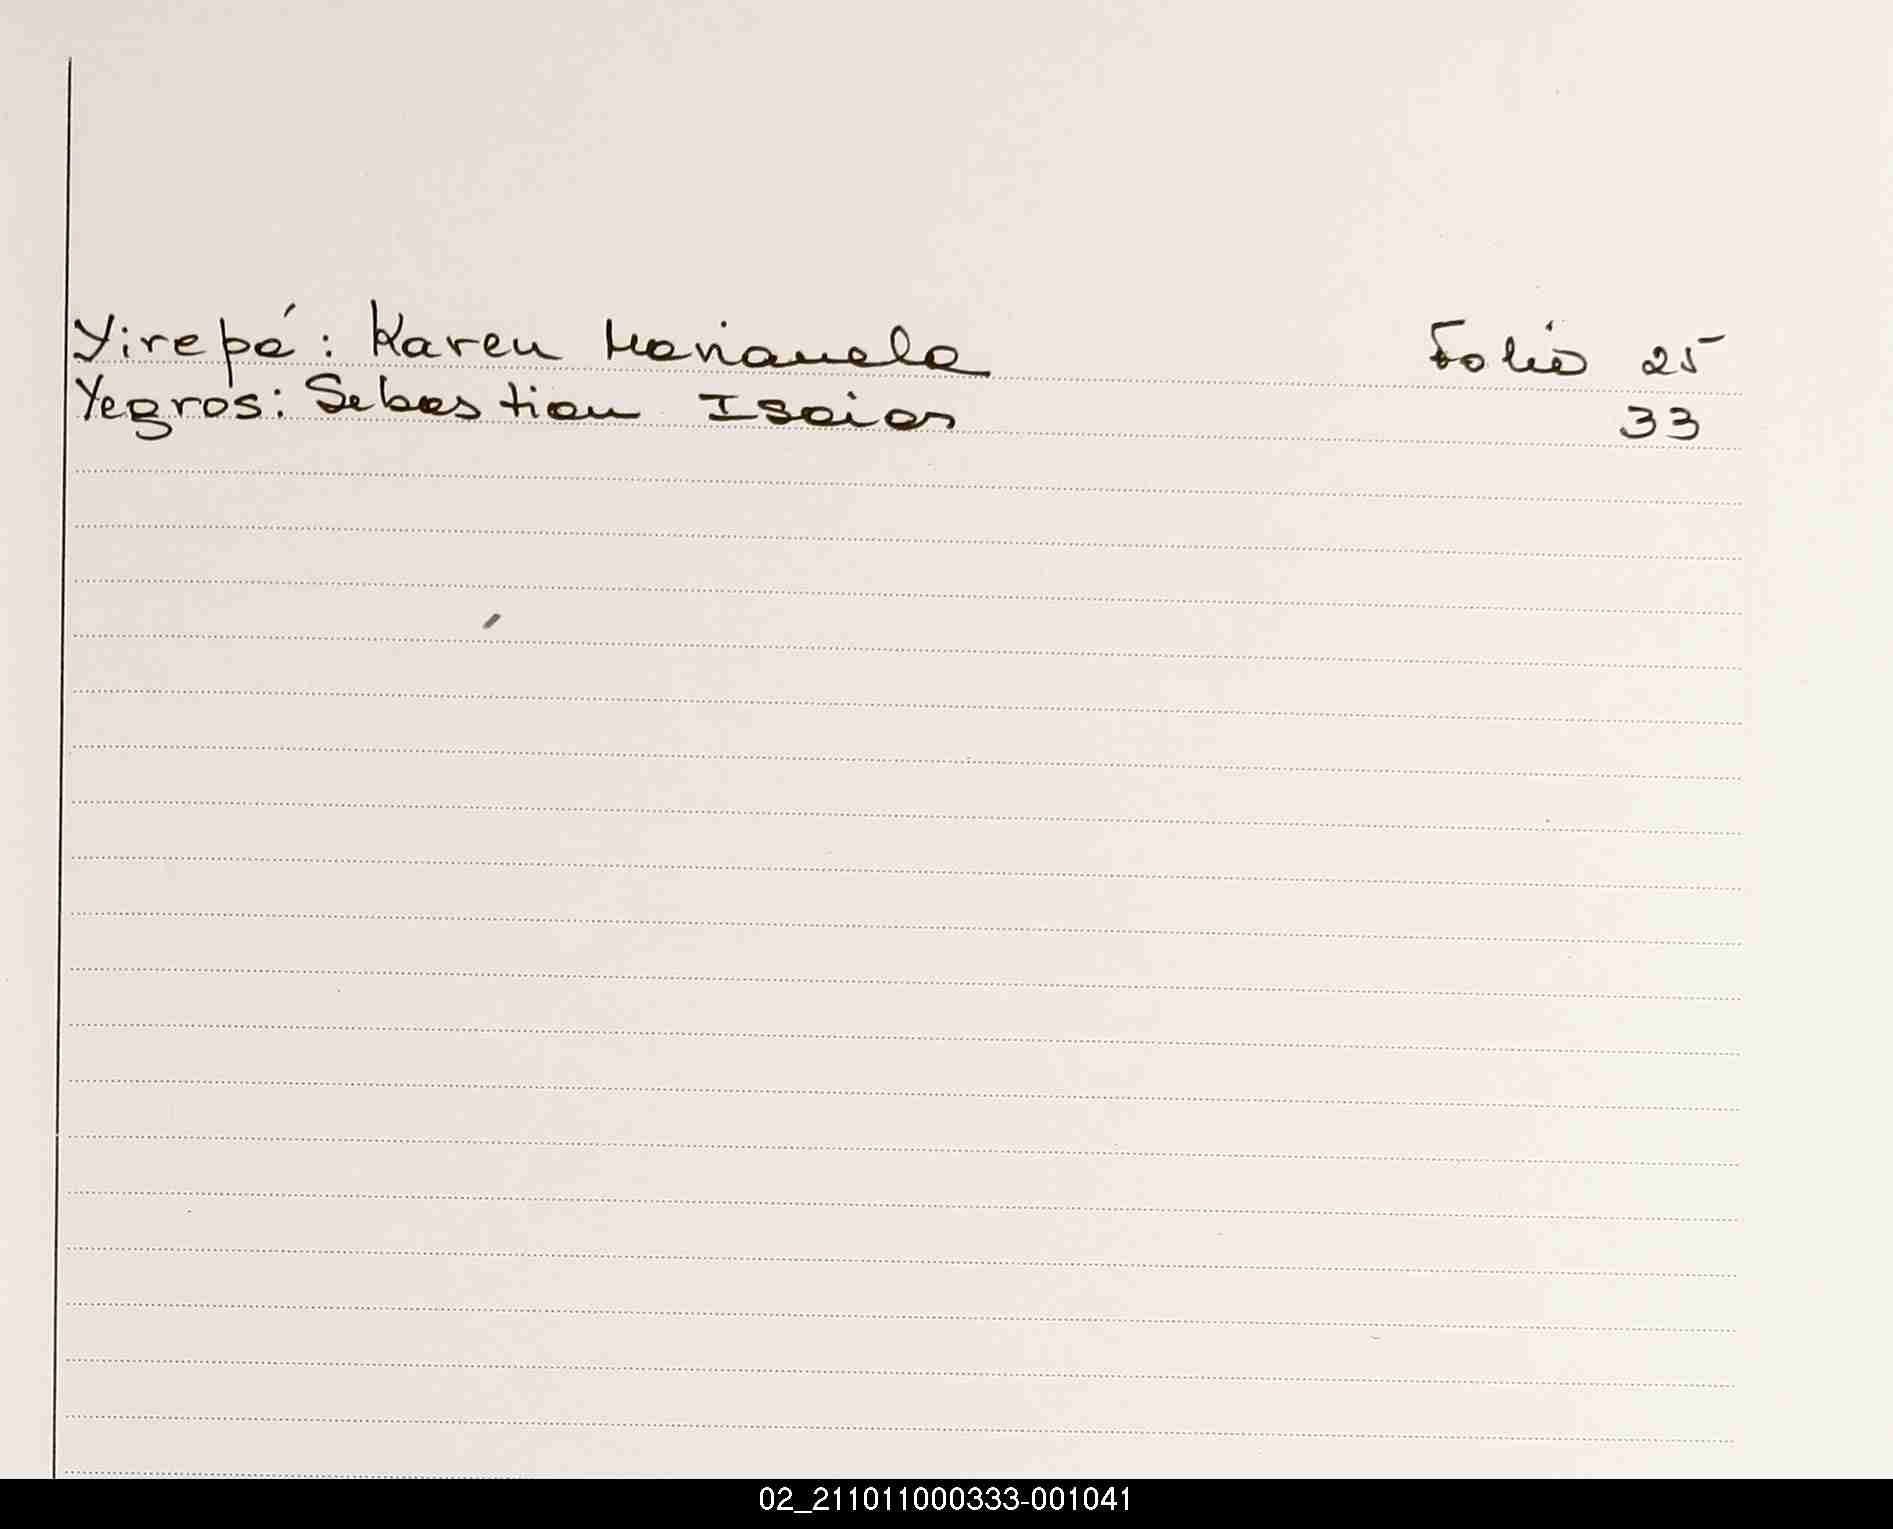 Yirepá: Karen Marianela Folio 25
Yegros: Sebastian Isaias 33
02_211011000333-001041